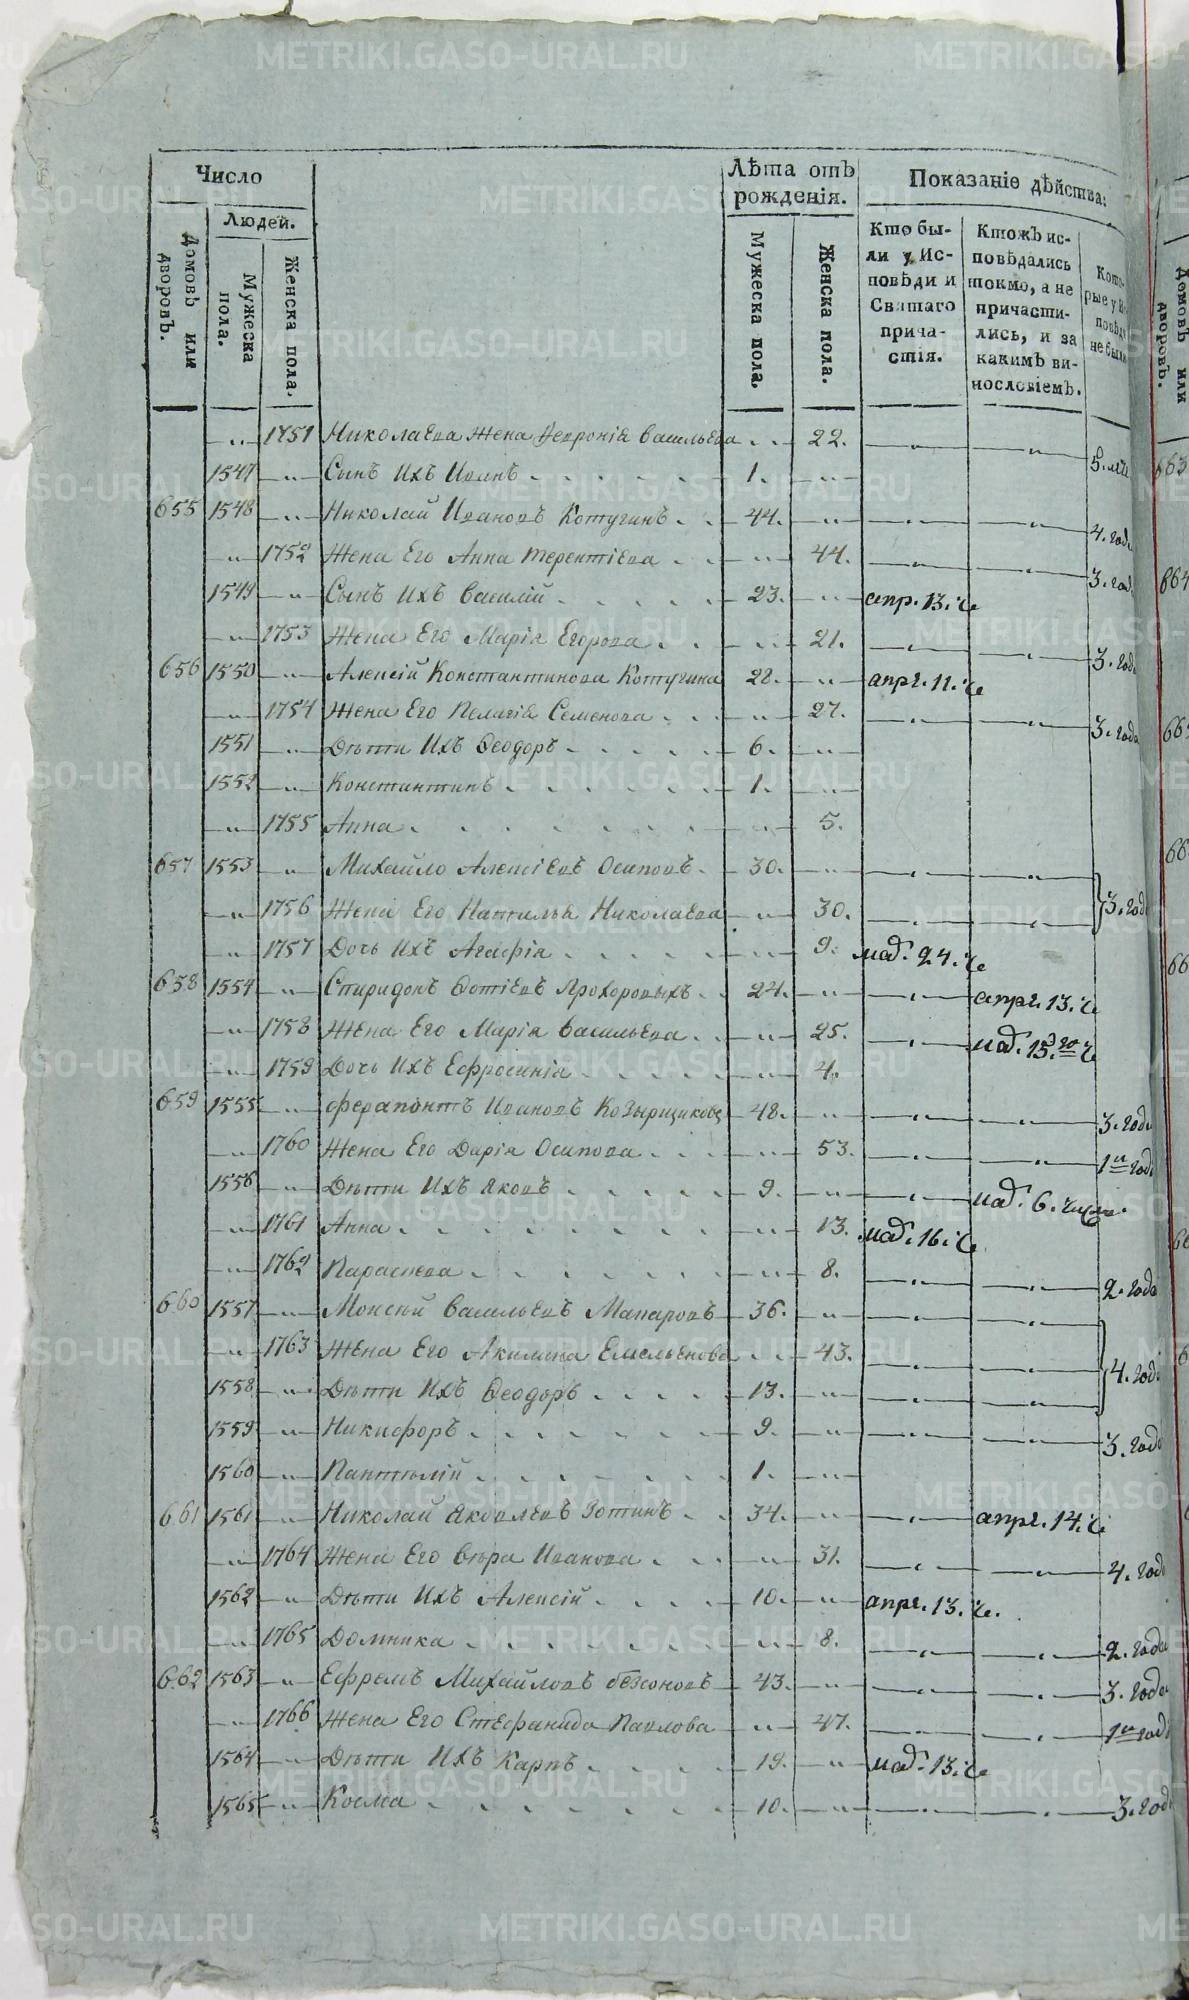 Число
Людей.
Домовъ или дворовъ.
Мужеска пола.
Женска пола.
Лѣта отъ рожденія.
Мужеска пола.
Женска пола.
Показаніе дѣйства.
Кто бы-
ли у Ис-
повѣди и
Святаго
прича-
стія.
Ктожъ ис-
повѣдались
токмо, а не
причасти-
лись, и за
какимъ ви-
нословіемъ.
Кото-
рые у Ис-
повѣди
не были
1751 Николаева Жена Февронія Васильева 22.
1547 Сынъ Ихъ Иванъ 1.
655 1548 Николай Ивановъ Котугинъ 44. 4. года
1752 Жена Его Анна Терентіева 44. 3. года
1549 Сынъ Ихъ Василій 23. апр. 13. ч
1753 Жена Его Марія Егорова 21. 3. года
656 1550 Алексій Константинова Котугина 28. апрг. 11. ч
1754 Жена Его Пелагія Семенова 27. 3. года
1551 Дѣти Ихъ Ѳеодоръ 6.
1552 Константинъ 1.
1755 Анна 5.
657 1553 Михайло Алексіевъ Осиповъ 30. 3. года
1756 Жена Его Наталья Николаева 30.
1757 Дочь Ихъ Агафія 9. 24. ч
658 1554 Спиридонъ Фотіевъ Прохоровыхъ 24. апрг. 13. ч
1758 Жена Его Марія Васильева 25. 15.
1759 Дочь Ихъ Ефросинія 4.
659 1555 Ферапонтъ Ивановъ Козырщиковъ 48. 3. года
1760 Жена Его Дарія Осипова 53. 1н годъ
1556 Дѣти Ихъ Яковъ 9. 6. числа
1761 Анна 13. 16. ч
1762 Параскева 8. 2. года
660 1557 Моисей Васильевъ Макаровъ 36. 4. года
1763 Жена Его Акилина Емельянова 43.
1558 Дѣти Ихъ Ѳеодоръ 13.
1559 Никифоръ 9. 3. года
1560 Пантелій 1.
661 1561 Николай Яковлевъ Зотинъ 34. апрг. 14. ч
1764 Жена Его Вѣра Иванова 31. 4. года
1562 Дѣти Ихъ Алексій 10. апрг. 13. ч.
1765 Домника 8. 2. года
662 1563 Ефремъ Михайловъ Безсоновъ 43. 3. года
1766 Жена Его Стефанида Павлова 47. 1н годъ
1564 Дѣти Ихъ Карпъ 19. 13. ч
1565 Косма 10. 3. года
METRIKI.GASO-URAL.RU